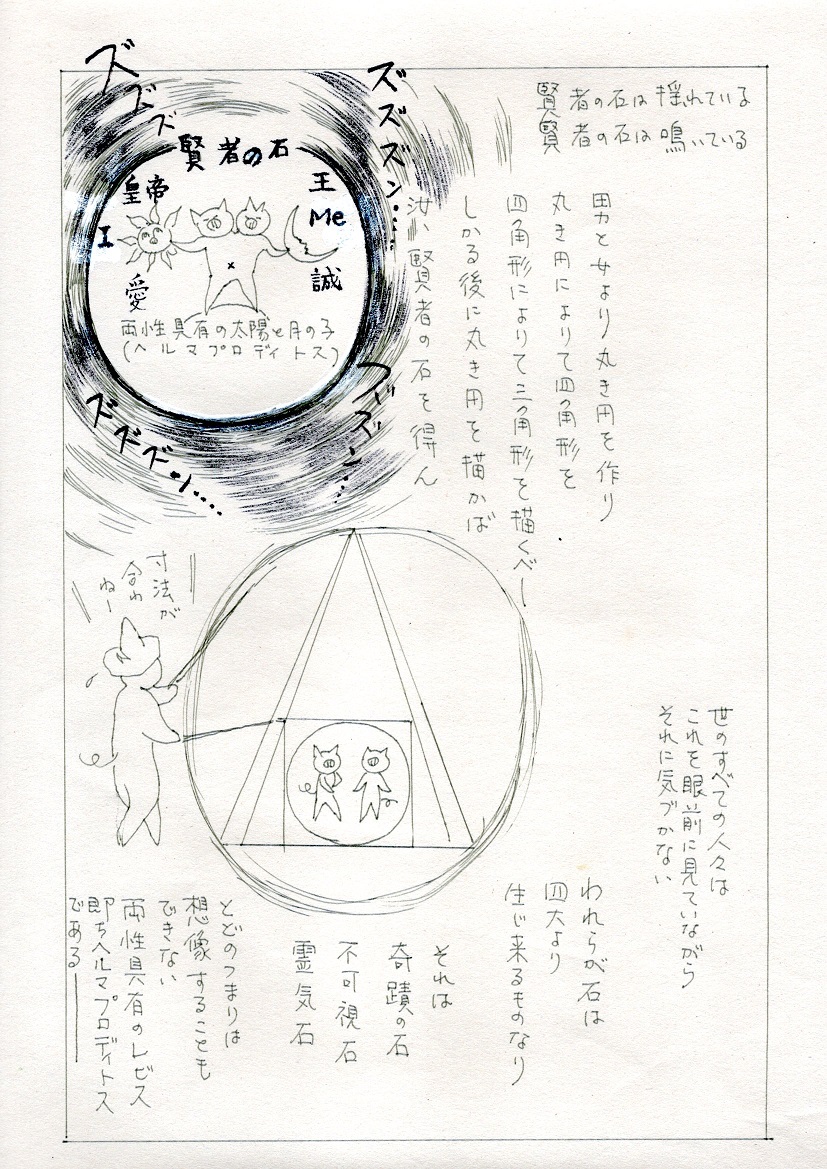 賢者の石は揺れている
賢者の石は鳴いている
男と女より丸き円を作り
丸き円によりて四角形を
四角形によりて三角形を描くべし
しかる後に丸き円を描かば
汝、賢者の石を得ん
ズズズ
ズズズン・・・・
賢者の石
皇帝
王
I
Me
愛
誠
両性具有の太陽と月の子
(ヘルマプロディトス)
ズズズン・・・・
ズズズン・・・・
寸法が
合わ
ねー
世のすべての人々は
これを眼前に見ていながら
それに気づかない
われらが石は
四大より
生じ来るものなり
それは
奇蹟の石
不可視石
霊気石
とどのつまりは
想像することも
できない
両性具有のレビス
即ちヘルマプロディトス
である――